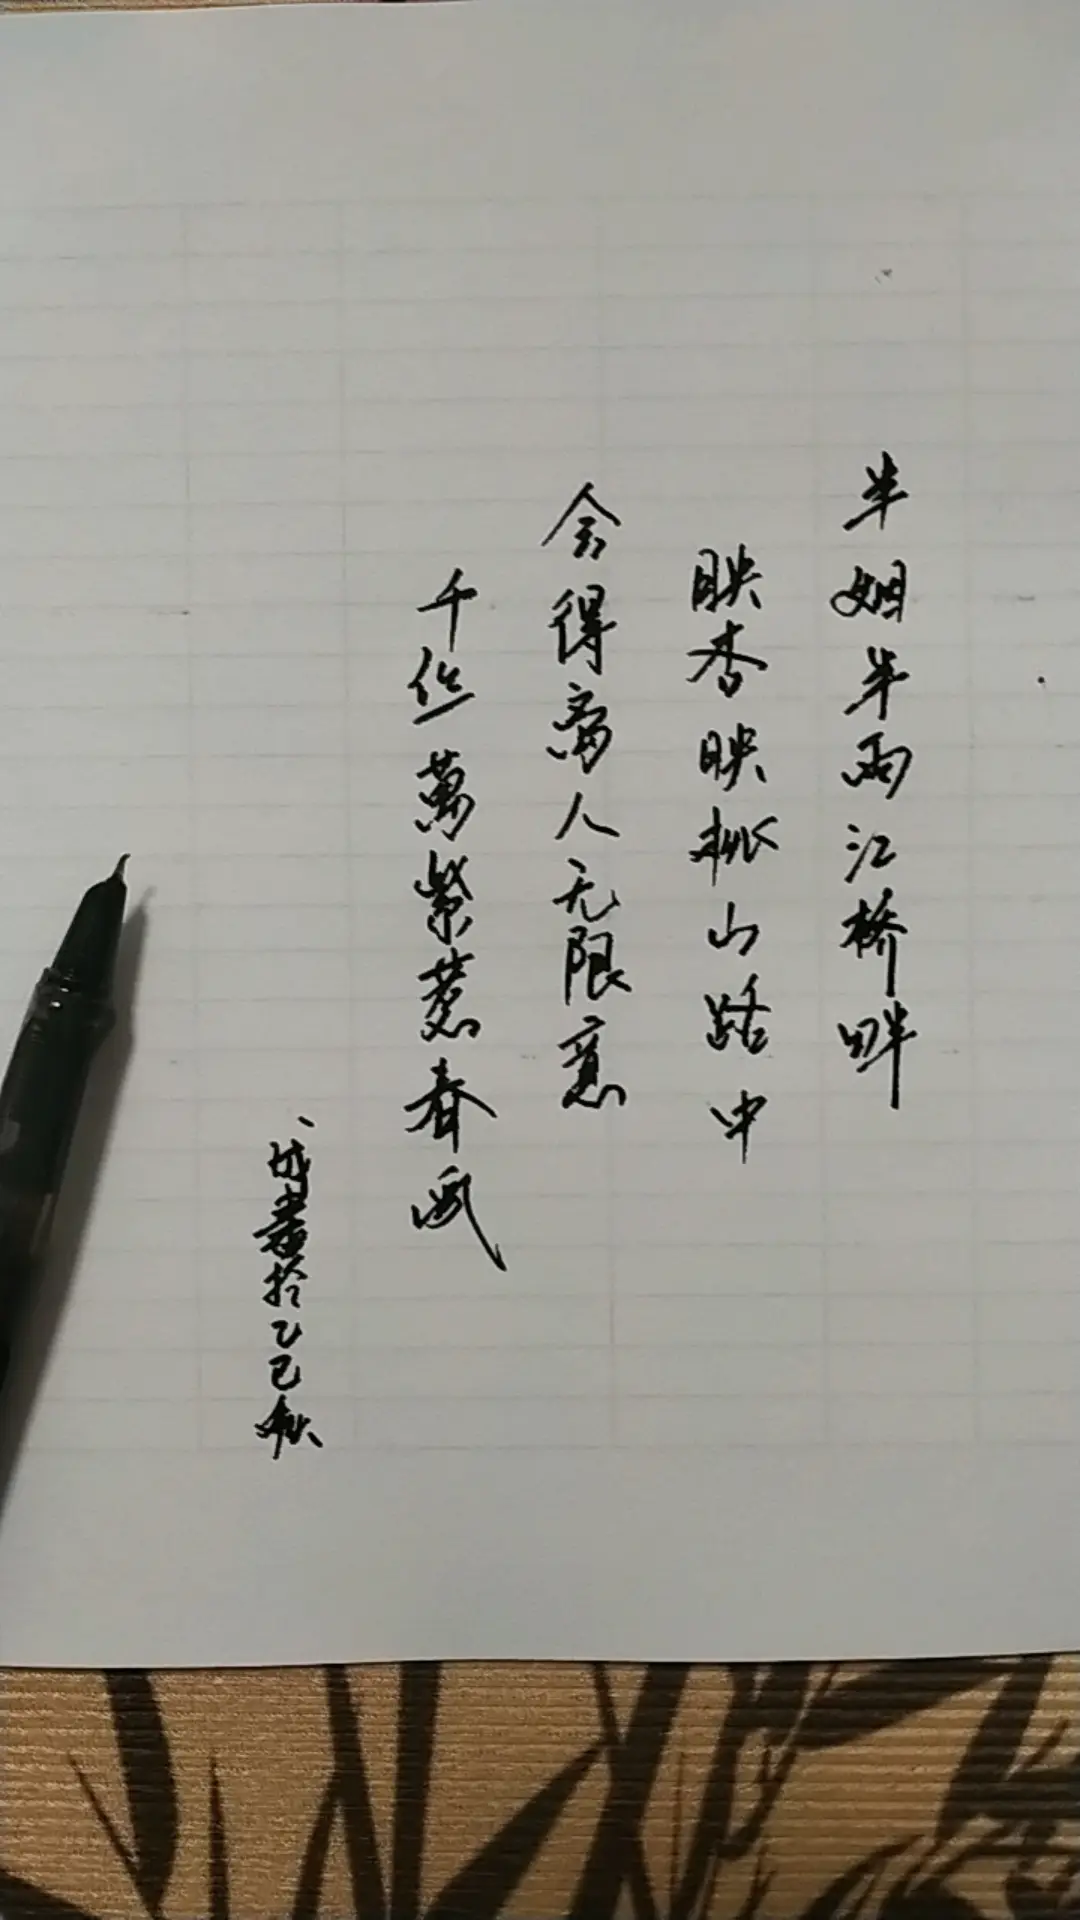 半烟半雨江桥畔
映杏映桃山路中
会得离人无限意
千丝萬絮惹春风
书於乙巳秋